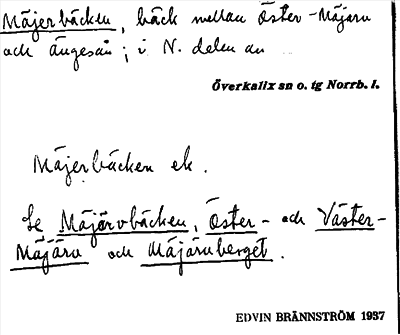 Mäjerbäcken, bäck mellan Öster-Mäjäru
och Ängesån; i N. delen av
Överkalix sn o. tg Norrb. l.
Mäjerbäcken ek.
Se Mäjärvbäcken, Öster- och Väster-
Mäjäru och Mäjäruberget.
EDVIN BRÄNNSTRÖM 1937